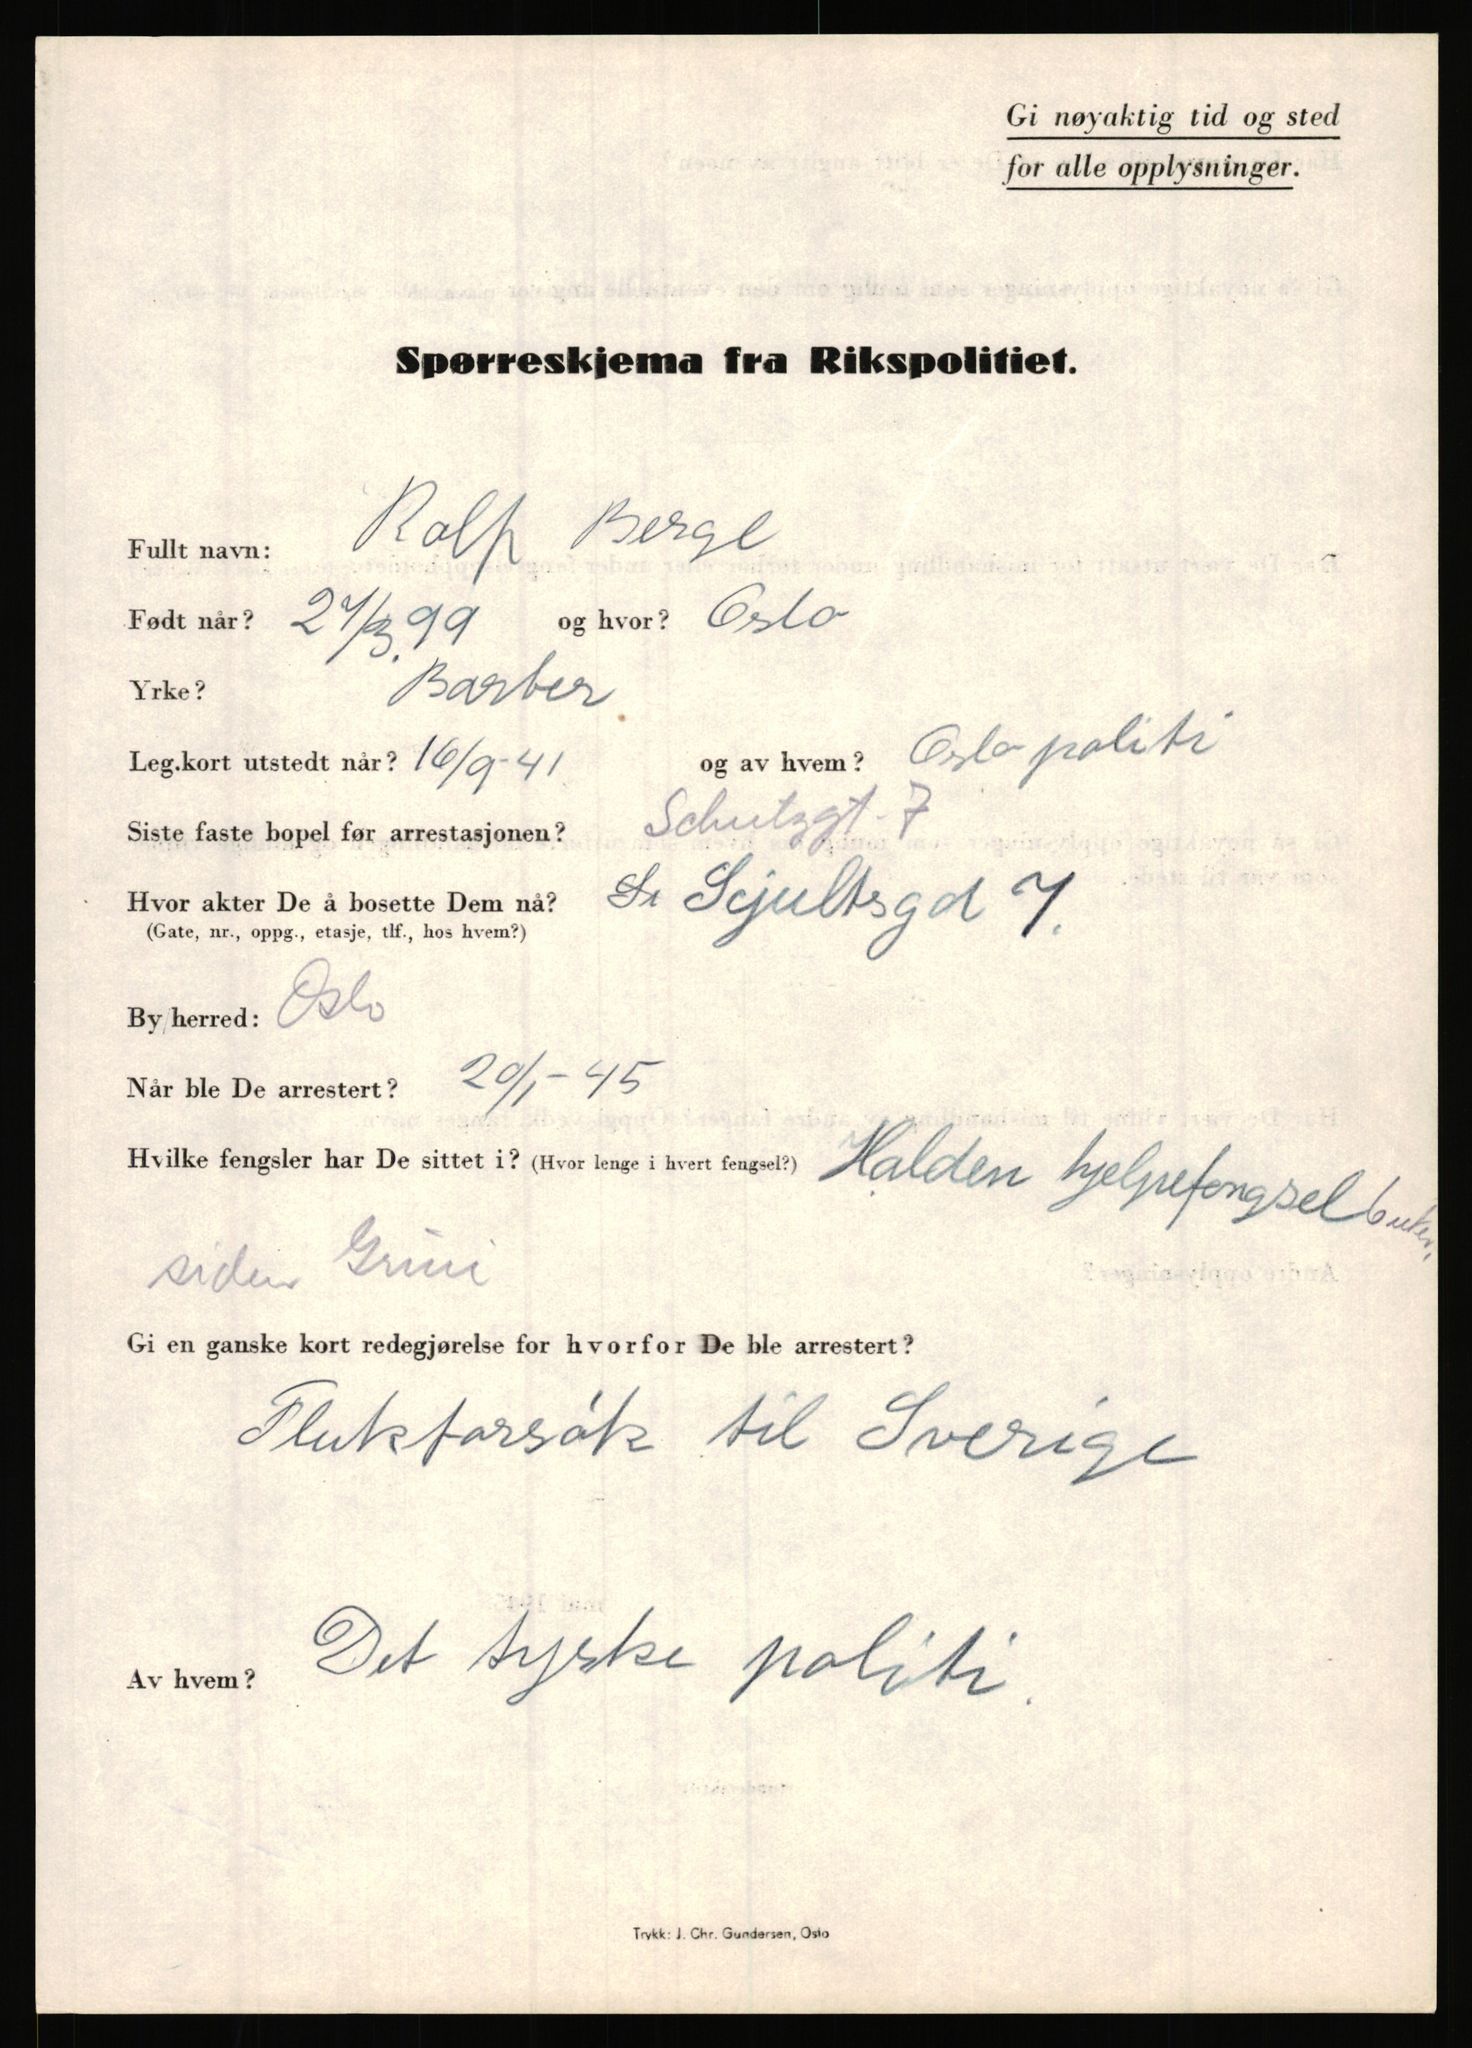 Gi nøyaktig tid og sted
for alle opplysninger.
Spørreskjema fra Rikspolitiet.
Fullt navn: Rolf Berge
Født når? 27/3.99 og hvor? Oslo
Yrke? Barber
Leg.kort utstedt når? 16/9-41 og av hvem? Oslo politi
Siste faste bopel før arrestasjonen? Schultzgt. 7
Hvor akter De å bosette Dem nå? Sjultsgd 7.
(Gate, nr., oppg., etasje, tlf., hos hvem?)
By/herred: Oslo
Når ble De arrestert? 20/1-45
Hvilke fengsler har De sittet i? (Hvor lenge i hvert fengsel?) Halden hjelpefengsel 6 uker,
siden Grini
Gi en ganske kort redegjørelse for hvorfor De ble arrestert?
Fluktforsök til Sverige
Av hvem? Det tyske politi.
Trykk: J. Chr. Gundersen, Oslo